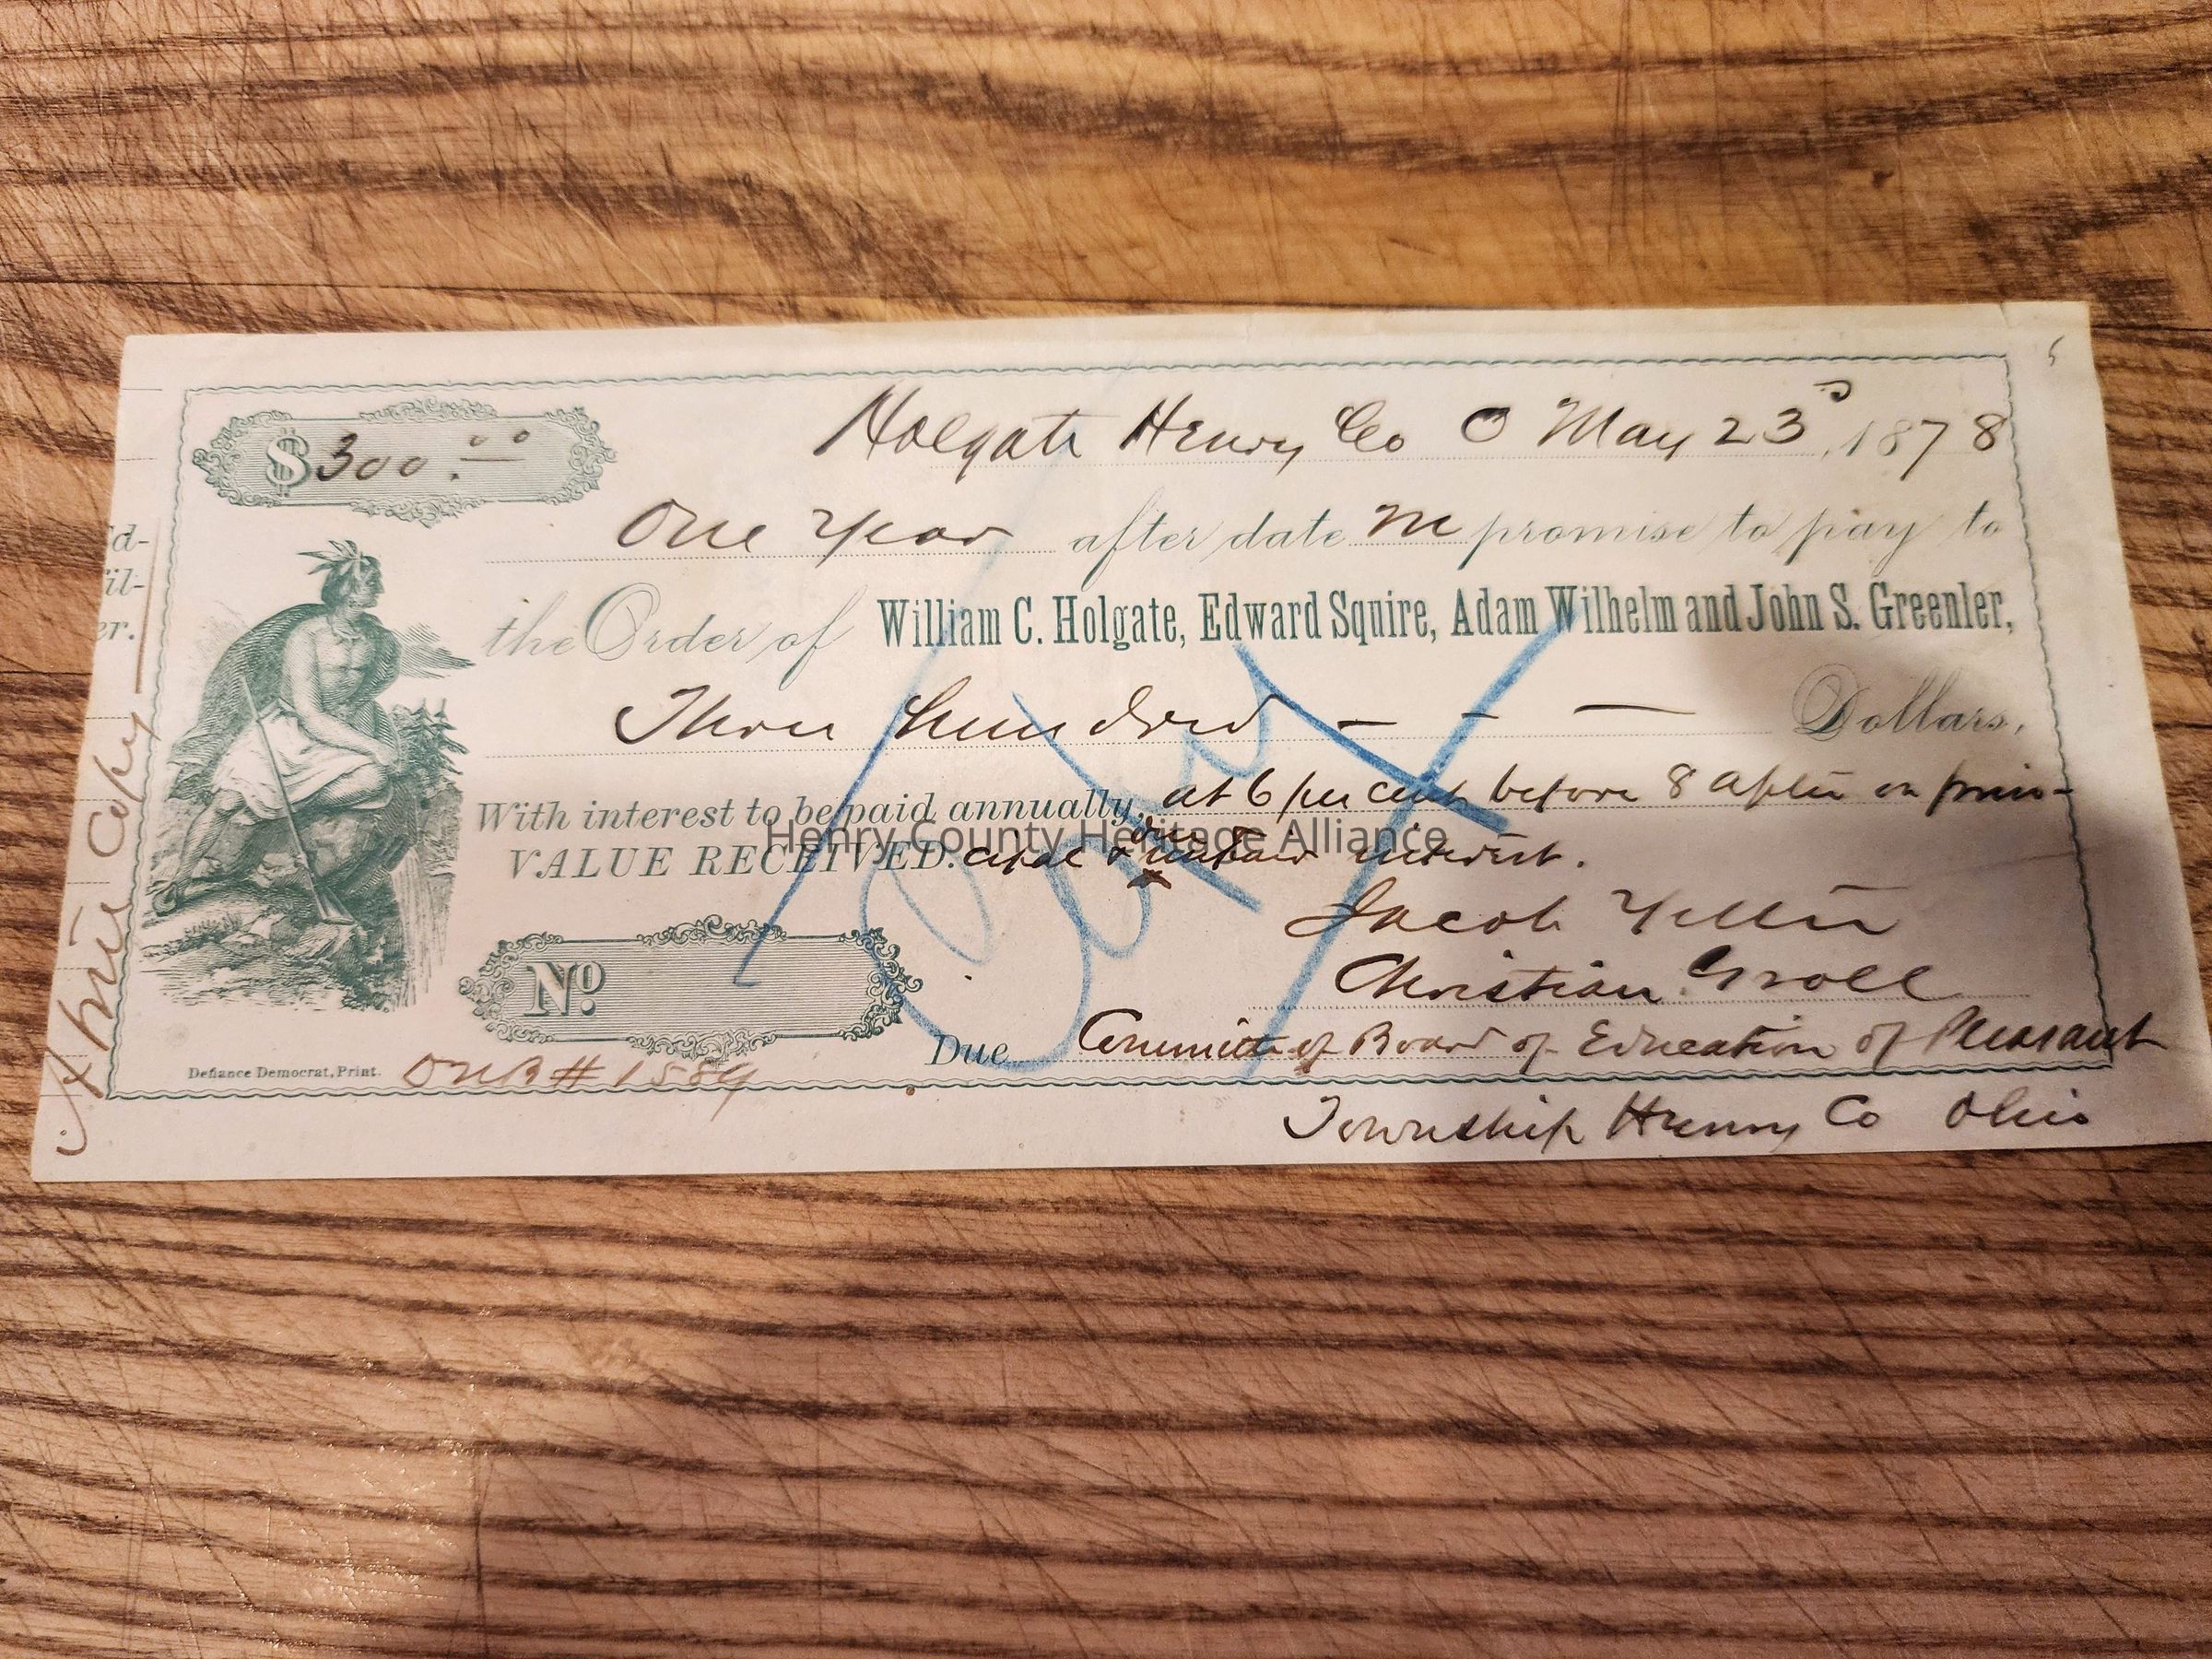 $300.00
Holgate Henry Co O May 23d, 1878
One Year after date We promise to pay to
the Order of William C. Holgate, Edward Squire, Adam Wilhelm and John S. Greenler,
Three hundred - - — Dollars,
With interest to be paid annually, at 6 per cent before 8 after on prin-
VALUE RECEIVED. cipal & due & unpaid interest.
Jacob Yetter
Christian Groll
Due Committe of Board of Education of Pleasant
Township Henry Co Ohio
No
Defiance Democrat, Print.
# 1589
A true Copy
d-
il-
er.
Copy
Henry County Heritage Alliance